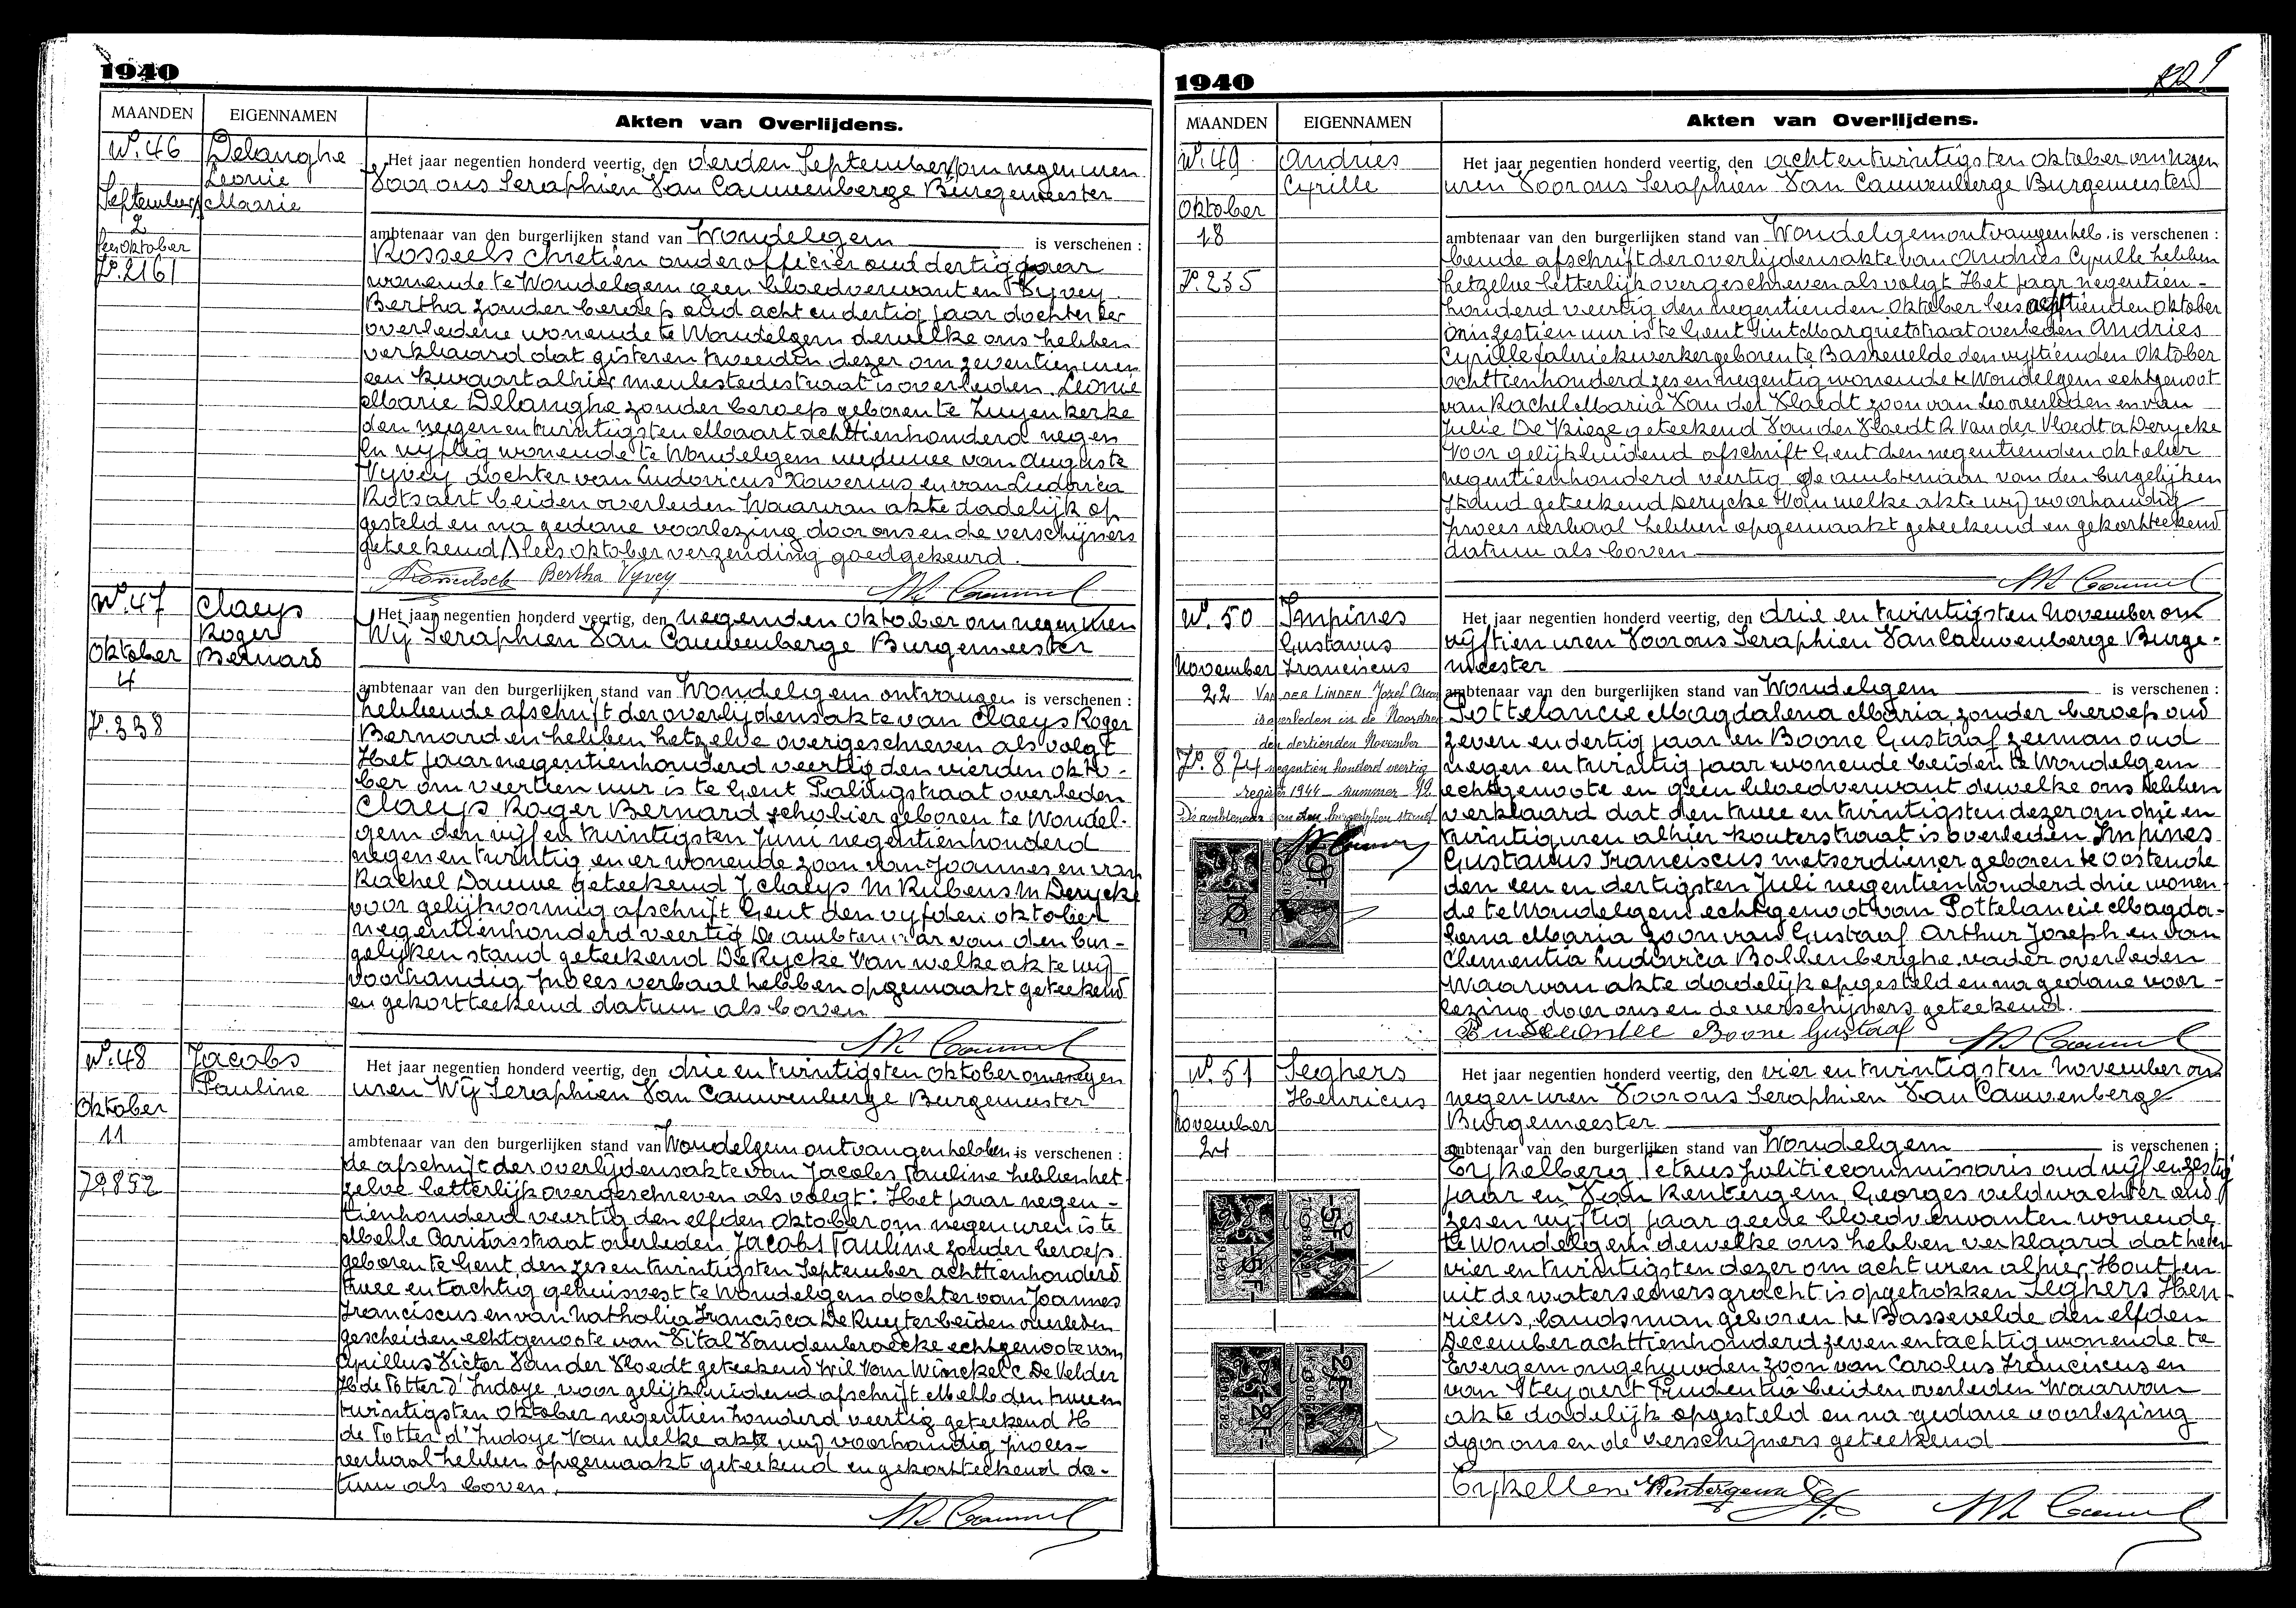 1940
MAANDEN EIGENNAMEN Akten van Overlijdens.
No. 46 Delanghe
Leonie
September Marie
2
lees oktober
Jo. 2161
Het jaar negentien honderd veertig, den derden September om negen uren
Voor ons Seraphien Van Cauwenberge Burgemeester
ambtenaar van den burgerlijken stand van Wondelgem is verschenen :
Rosseels Chretien onderofficier oud dertig jaar
wonende te Wondelgem geen bloedverwant en Vyvey
Bertha zonder beroep oud acht en dertig jaar dochter der
overledene wonende te Wondelgem dewelke ons hebben
verklaard dat gisteren tweeden dezer om zeventien uren
een kwaart alhier meulestedestraat is overleden Leonie
Marie Delanghe zonder beroep geboren te Zuyenkerke
den negen en twintigsten Maart achttienhonderd negen
en vyftig wonende te Wondelgem weduwe van Auguste
Vyvey dochter van Ludovicus Xaverius en van Ludovica
Rotsaert beiden overleden Waarvan akte dadelijk op
gesteld en na gedane voorlezing door ons en de verschijners
geteekend / lees oktober verzending goedgekeurd.
Bertha Vyvey
No. 47 Claeys
Roger
Oktober Bernard
4
Jo. 338
Het jaar negentien honderd veertig, den negenden Oktober om negen uren
Wij Seraphien Van Cauwenberge Burgemeester
ambtenaar van den burgerlijken stand van Wondelgem ontvangen is verschenen :
hebbende afschrift der overlijdensakte van Claeys Roger
Bernard en hebben hetzelve overigeschreven als volgt
Het jaar negentienhonderd veertig den vierden okto-
ber om veertien uur is te Gent Palingstraat overleden
Claeys Roger Bernard scholier geboren te Wondel-
gem den vijf en twintigsten Juni negentienhonderd
negen en twintig en er wonende zoon van Joannes en van
Rachel Dauwe geteekend J Claeys M Rubens M Derycke
voor gelijkvormig afschrift Gent den vyfden oktober
negentienhonderd veertig De ambtenaar van den bur-
gelijken stand geteekend DeRycke Van welke akte wij
voorhandig proces verbaal hebben opgemaakt geteekend
en gekortteekend datum als boven
No. 48 Jacobs
Pauline
Oktober
11
Jo. 852
Het jaar negentien honderd veertig, den drie en twintigsten Oktober om negen
uren Wij Seraphien Van Cauwenberge Burgemeester
ambtenaar van den burgerlijken stand van Wondelgem ontvangen hebben is verschenen :
de afschrift der overlijdensakte van Jacobs Pauline hebben het
zelve letterlijk overgeschreven als volgt: Het jaar negen-
tienhonderd veertig den elfden Oktober om negen uren is te
Melle Caritasstraat overleden Jacobs Pauline zonder beroep
geboren te Gent den zes en twintigsten September achttienhonderd
twee en tachtig gehuisvest te Wondelgem dochter van Joannes
Franciscus en van Nathalia Francisca De Ruyter beiden overleden
gescheiden echtgenoote van Vital Vandenbroecke echtgenoote van
Cyrillus Victor Van der Vloedt geteekend Wil Van Winckel C De Velder
H de Potter d'Indoye voor gelijkluidend afschrift Melle den twee en
twintigsten Oktober negentienhonderd veertig geteekend H
de Potter d'Indoye Van welke akte wij voorhandig proces-
verbaal hebben opgemaakt geteekend en gekortteekend da-
tum als boven.
1940
MAANDEN EIGENNAMEN Akten van Overlijdens.
No. 49 Andries
Cyrille
Oktober
18
Jo. 235
Het jaar negentien honderd veertig, den acht en twintigsten Oktober om negen
uren Voor ons Seraphien Van Cauwenberge Burgemeester
ambtenaar van den burgerlijken stand van Wondelgem ontvangen heb- is verschenen :
bende afschrift der overlijdensakte van Andries Cyrille hebben
hetzelve letterlijk overgeschreven als volgt Het jaar negentien-
honderd veertig den negentienden Oktober lees achttienden Oktober
om zestien uur is te Gent Sint Margrietstraat overleden Andries
Cyrille fabriekwerker geboren te Bassevelde den vyftienden Oktober
achttienhonderd zes en negentig wonende te Wondelgem echtgenoot
van Rachel Maria Van der Vloedt zoon van Leo overleden en van
Julie De Vliege geteekend Van der Vloedt R Van der Vloedt a Derycke
Voor gelijkluidend afschrift Gent den negentienden oktober
negentienhonderd veertig De ambtenaar van den burgelijken
stand geteekend Derycke Van welke akte wij voorhandig
proces verbaal hebben opgemaakt geteekend en gekortteekend
datum als boven
No. 50 Impines
Gustavus
November Franciscus
22
VAN DER LINDEN Jozef Oscar
is overleden in de Noordzee
den dertienden November
Jo. 874
negentien honderd veertig
register 1944 nummer 12
De ambtenaar van den burgerlijken stand
10F 10F
Het jaar negentien honderd veertig, den drie en twintigsten November om
vijftien uren Voor ons Seraphien Van Cauwenberge Burge-
meester
ambtenaar van den burgerlijken stand van Wondelgem is verschenen :
Pottelancie Magdalena Maria, zonder beroep oud
zeven en dertig jaar en Boone Gustaaf zeeman oud
negen en twintig jaar wonende beiden te Wondelgem
echtgenoote en geen bloedverwant dewelke ons hebben
verklaard dat den twee en twintigsten dezer om drie en
twintig uren alhier Kouterstraat is overleden Impines
Gustavus Franciscus metserdiener geboren te Oostende
den een en dertigsten Juli negentienhonderd drie wonen
de te Wondelgem echtgenoot van Pottelancie Magda-
lena Maria zoon van Gustaaf Arthur Joseph en van
Clementia Ludovica Bollenberghe vader overleden
Waarvan akte dadelijk opgesteld en na gedane voor-
lezing door ons en de verschijners geteekend.
Boone Gustaaf
No. 51 Seghers
Henricus
November
24
5F 5F
2F 2F
Het jaar negentien honderd veertig, den vier en twintigsten November om
negen uren Voor ons Seraphien Van Cauwenberge
Burgemeester
ambtenaar van den burgerlijken stand van Wondelgem is verschenen :
Eykelberg Petrus politiecommissaris oud vijf en zestig
jaar en Van Renterghem Georges veldwachter oud
zes en vijftig jaar geene bloedverwanten wonende
te Wondelgem dewelke ons hebben verklaard dat heden
vier en twintigsten dezer om acht uren alhier Houtjen
uit de watersemersgracht is opgetrokken Seghers Hen-
ricus, landsman geboren te Bassevelde den elfden
December achttienhonderd zeven en tachtig wonende te
Evergem ongehuwden zoon van Carolus Franciscus en
van Steyaert Prudentia beiden overleden Waarvan
akte dadelijk opgesteld en na gedane voorlezing
door ons en de verschijners geteekend